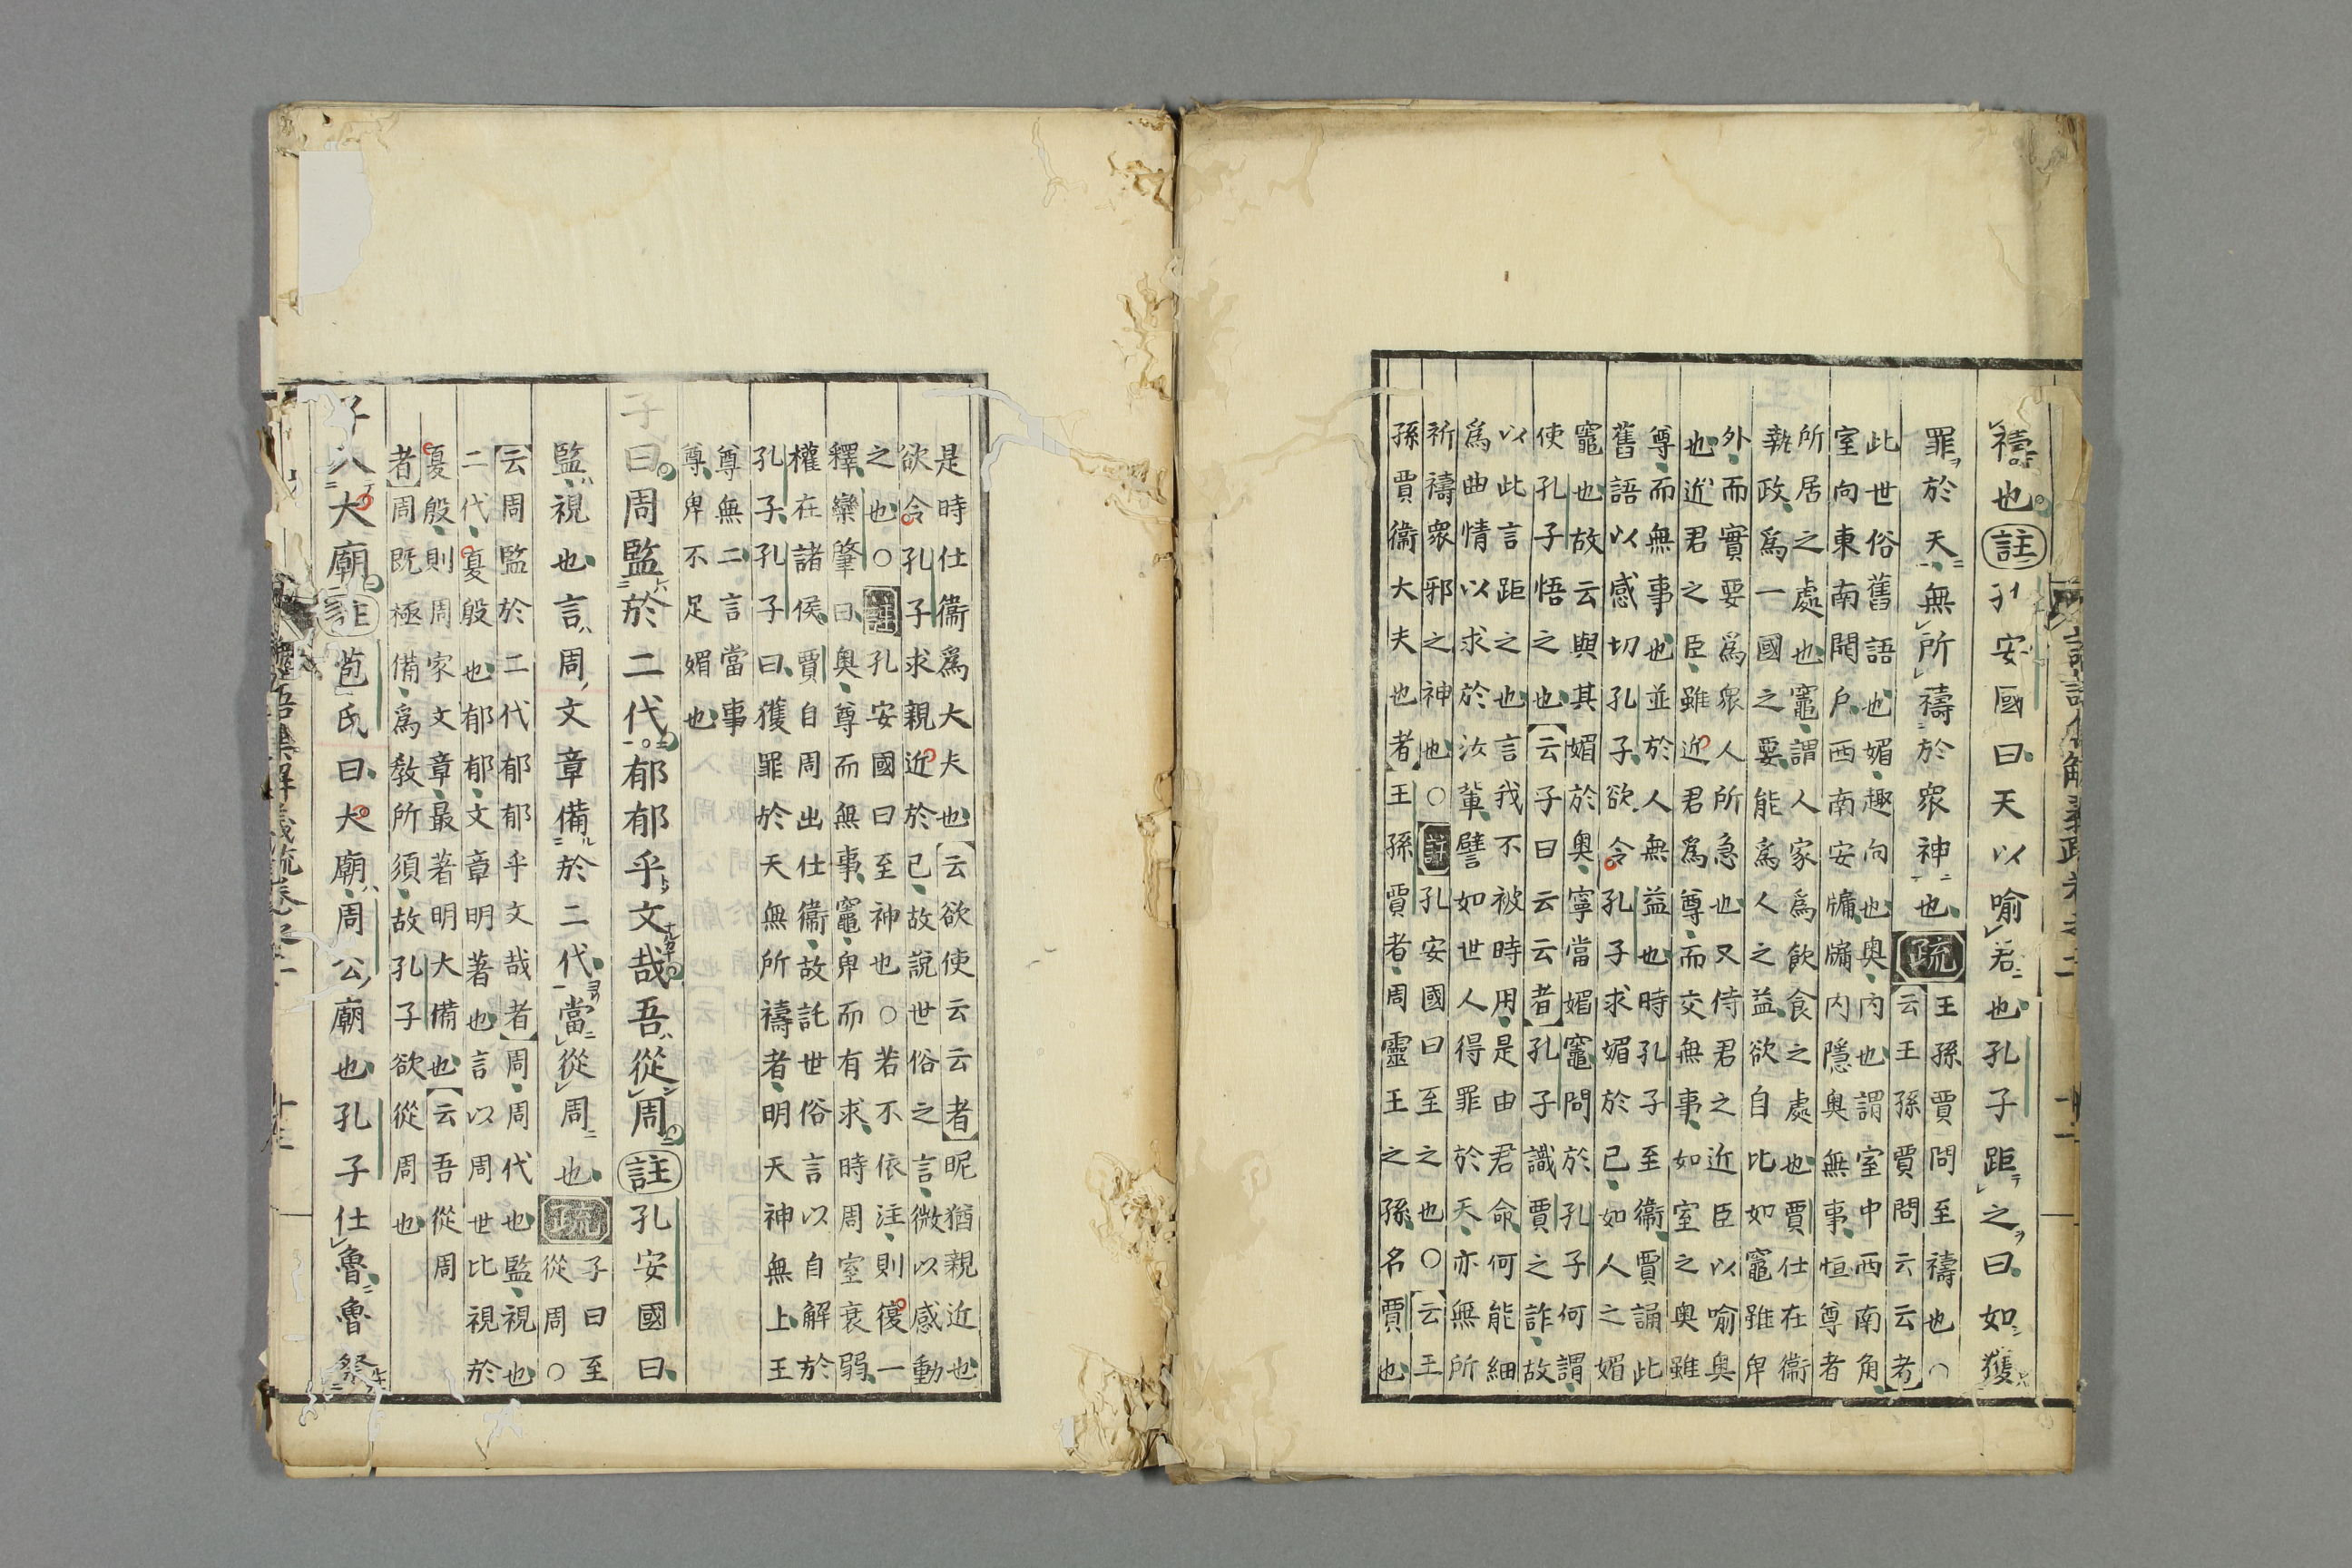 禱也註孔安國曰天以喻君也孔子距之曰如獲
罪於天無所禱於衆神也疏王孫賈問至禱也○
云王孫賈問云云者
此世俗舊語也媚趣向也奧內也謂室中西南角
室向東南開戶西南安牖牖內隱奧無事恒尊者
所居之處也竈謂人家爲飲食之處也賈仕在衞
執政爲一國之要能爲人之益欲自比如竈雖卑
外而實要爲衆人所急也又侍君之近臣以喻奧
也近君之臣雖近君爲尊而交無事如室之奧雖
尊而無事也並於人無益也時孔子至衞賈誦此
舊語以感切孔子欲令孔子求媚於己如人之媚
竈也故云與其媚於奧寧當媚竈問於孔子何謂
使孔子悟之也云子曰云云者孔子識賈之詐故
以此言距之也言我不被時用是由君命何能細
爲曲情以求於汝輩譬如世人得罪於天亦無所
祈禱衆邪之神也○註孔安國曰至之也○云王
孫賈衞大夫也者王孫賈者周靈王之孫名賈也
是時仕衞爲大夫也云欲使云云者昵猶親近也
欲令孔子求親近於己故說世俗之言微以感動
之也○註孔安國曰至神也○若不依注則復一
釋欒肇曰奧尊而無事竈卑而有求時周室衰弱
權在諸侯賈自周出仕衞故託世俗言以自解於
孔子孔子曰獲罪於天無所禱者明天神無上王
尊無二言當事
尊卑不足媚也
子曰周監於二代郁郁乎文哉吾從周註孔安國曰
監視也言周文章備於二代當從周也疏子曰至
從周○
云周監於二代郁郁乎文哉者周周代也監視也
二代夏殷也郁郁文章明著也言以周世比視於
夏殷則周家文章最著明大備也云吾從周
者周既極備爲教所須故孔子欲從周也
子入大廟註苞氏曰大廟周公廟也孔子仕魯魯祭
語集解義疏卷